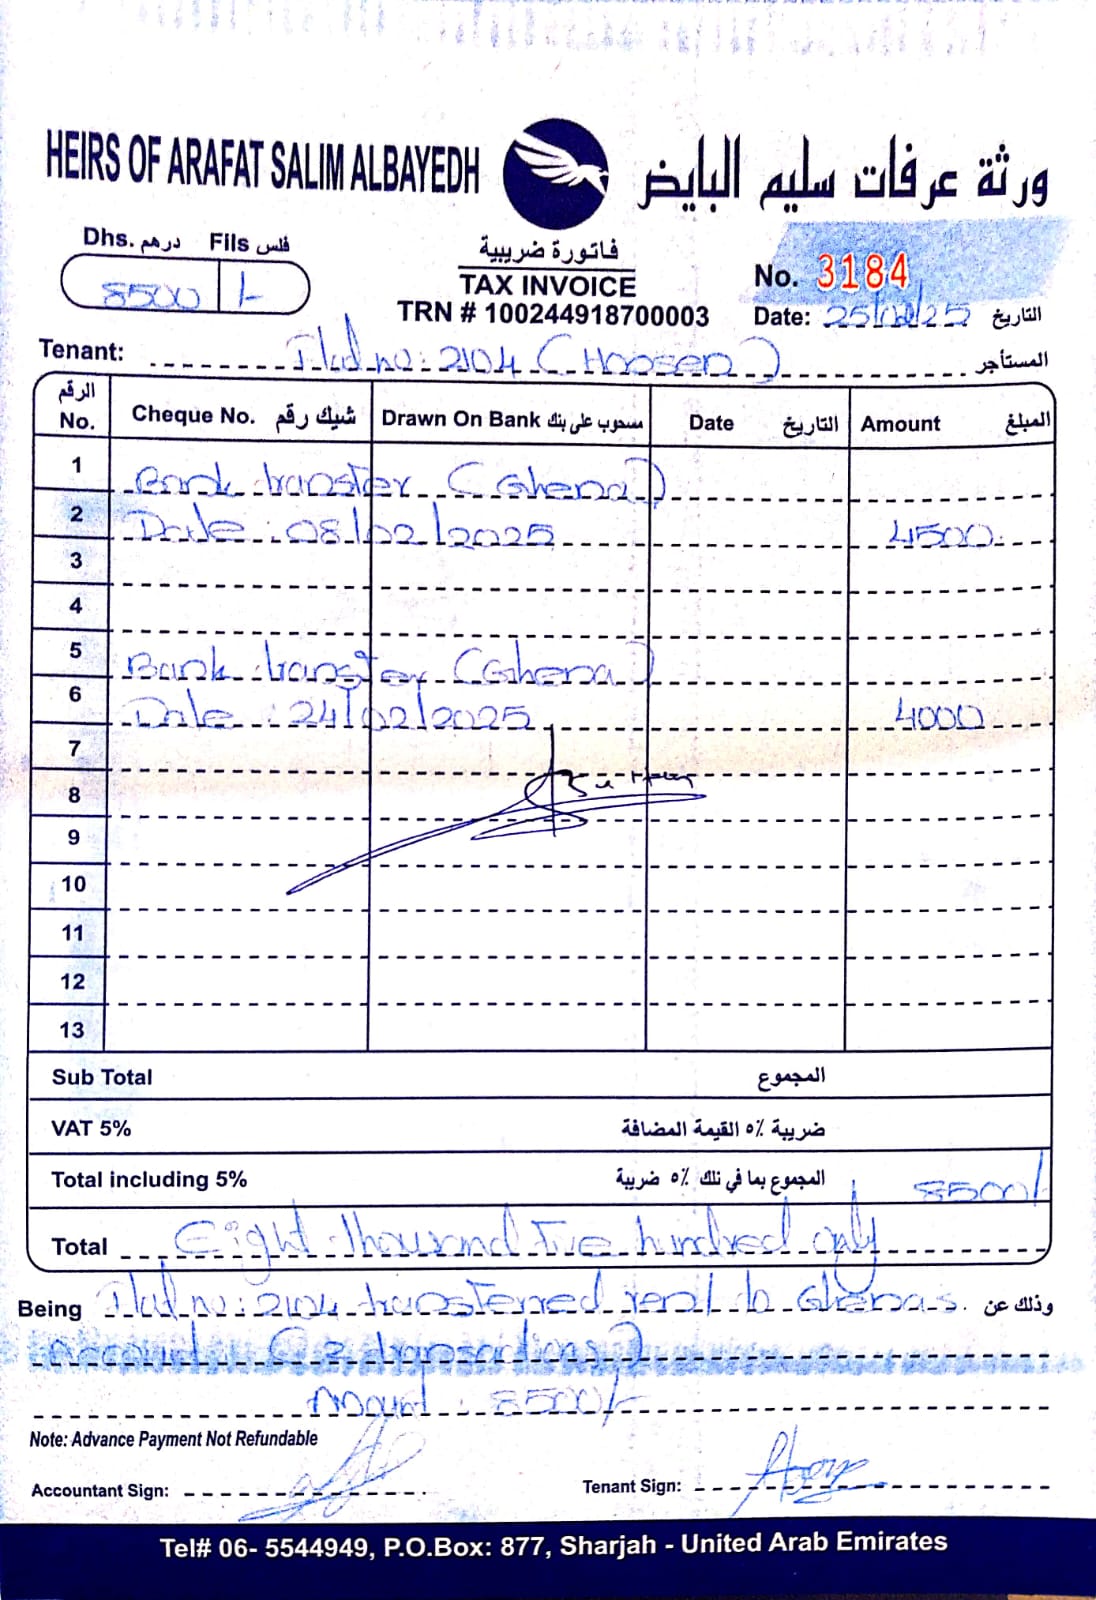 HEIRS OF ARAFAT SALIM ALBAYEDH ورثة عرفات سليم البايض
Dhs. درهم Fils فلس
8500 /-
فاتورة ضريبية
TAX INVOICE
TRN # 100244918700003
No. 3184
Date: 25/02/25 التاريخ
Tenant: Flat no: 2104 (Hoosen) المستأجر
الرقم No. Cheque No. شيك رقم Drawn On Bank مسحوب على بنك Date التاريخ Amount المبلغ
1 Bank transfer (Ghena)
2 Date: 08/02/2025 4500
3
4
5 Bank transfer (Ghena)
6 Date: 24/02/2025 4000
7
8
9
10
11
12
13
Sub Total المجموع
VAT 5% ضريبة ٥٪ القيمة المضافة
Total including 5% المجموع بما في تلك ٥٪ ضريبة 8500/-
Total Eight thousand Five hundred only
Being Flat no: 2104 transferred rent to Ghenas. وذلك عن
Account (2 transactions)
Amount: 8500/-
Note: Advance Payment Not Refundable
Accountant Sign: Tenant Sign:
Tel# 06- 5544949, P.O.Box: 877, Sharjah - United Arab Emirates